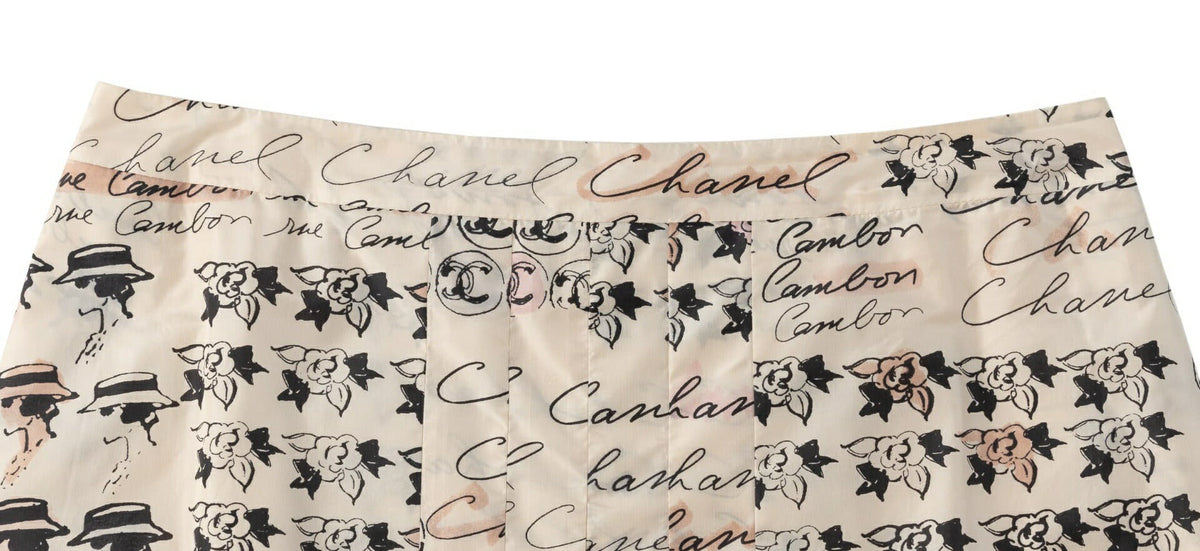 Chanel Chanel Chanel
rue Cambon
rue Cambon rue Camb
Cambon
Cambon
Cambon
Chanel
Chan
Chane
Canhan
hanhan
Chan